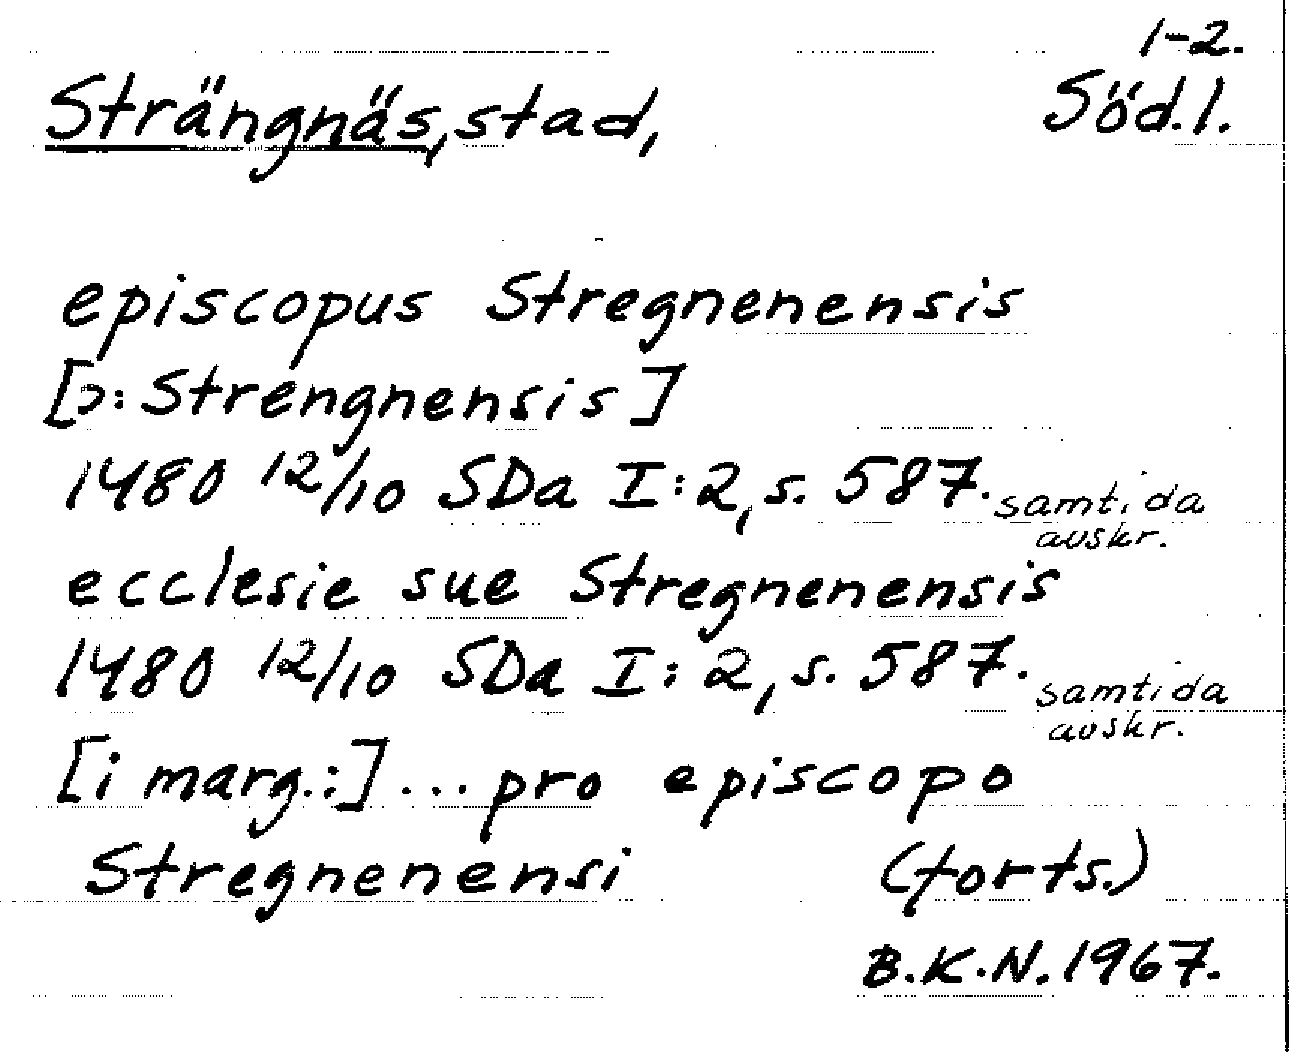 1-2.
Strängnäs, stad, Söd.l.
episcopus Stregnenensis
[ɔ: Strengnensis]
1480 12/10 SDa I:2, s. 587. samtida
avskr.
ecclesie sue Stregnenensis
1480 12/10 SDa I:2, s. 587. samtida
avskr.
[i marg.:] ... pro episcopo
Stregnenensi (forts.)
B.K.N. 1967.